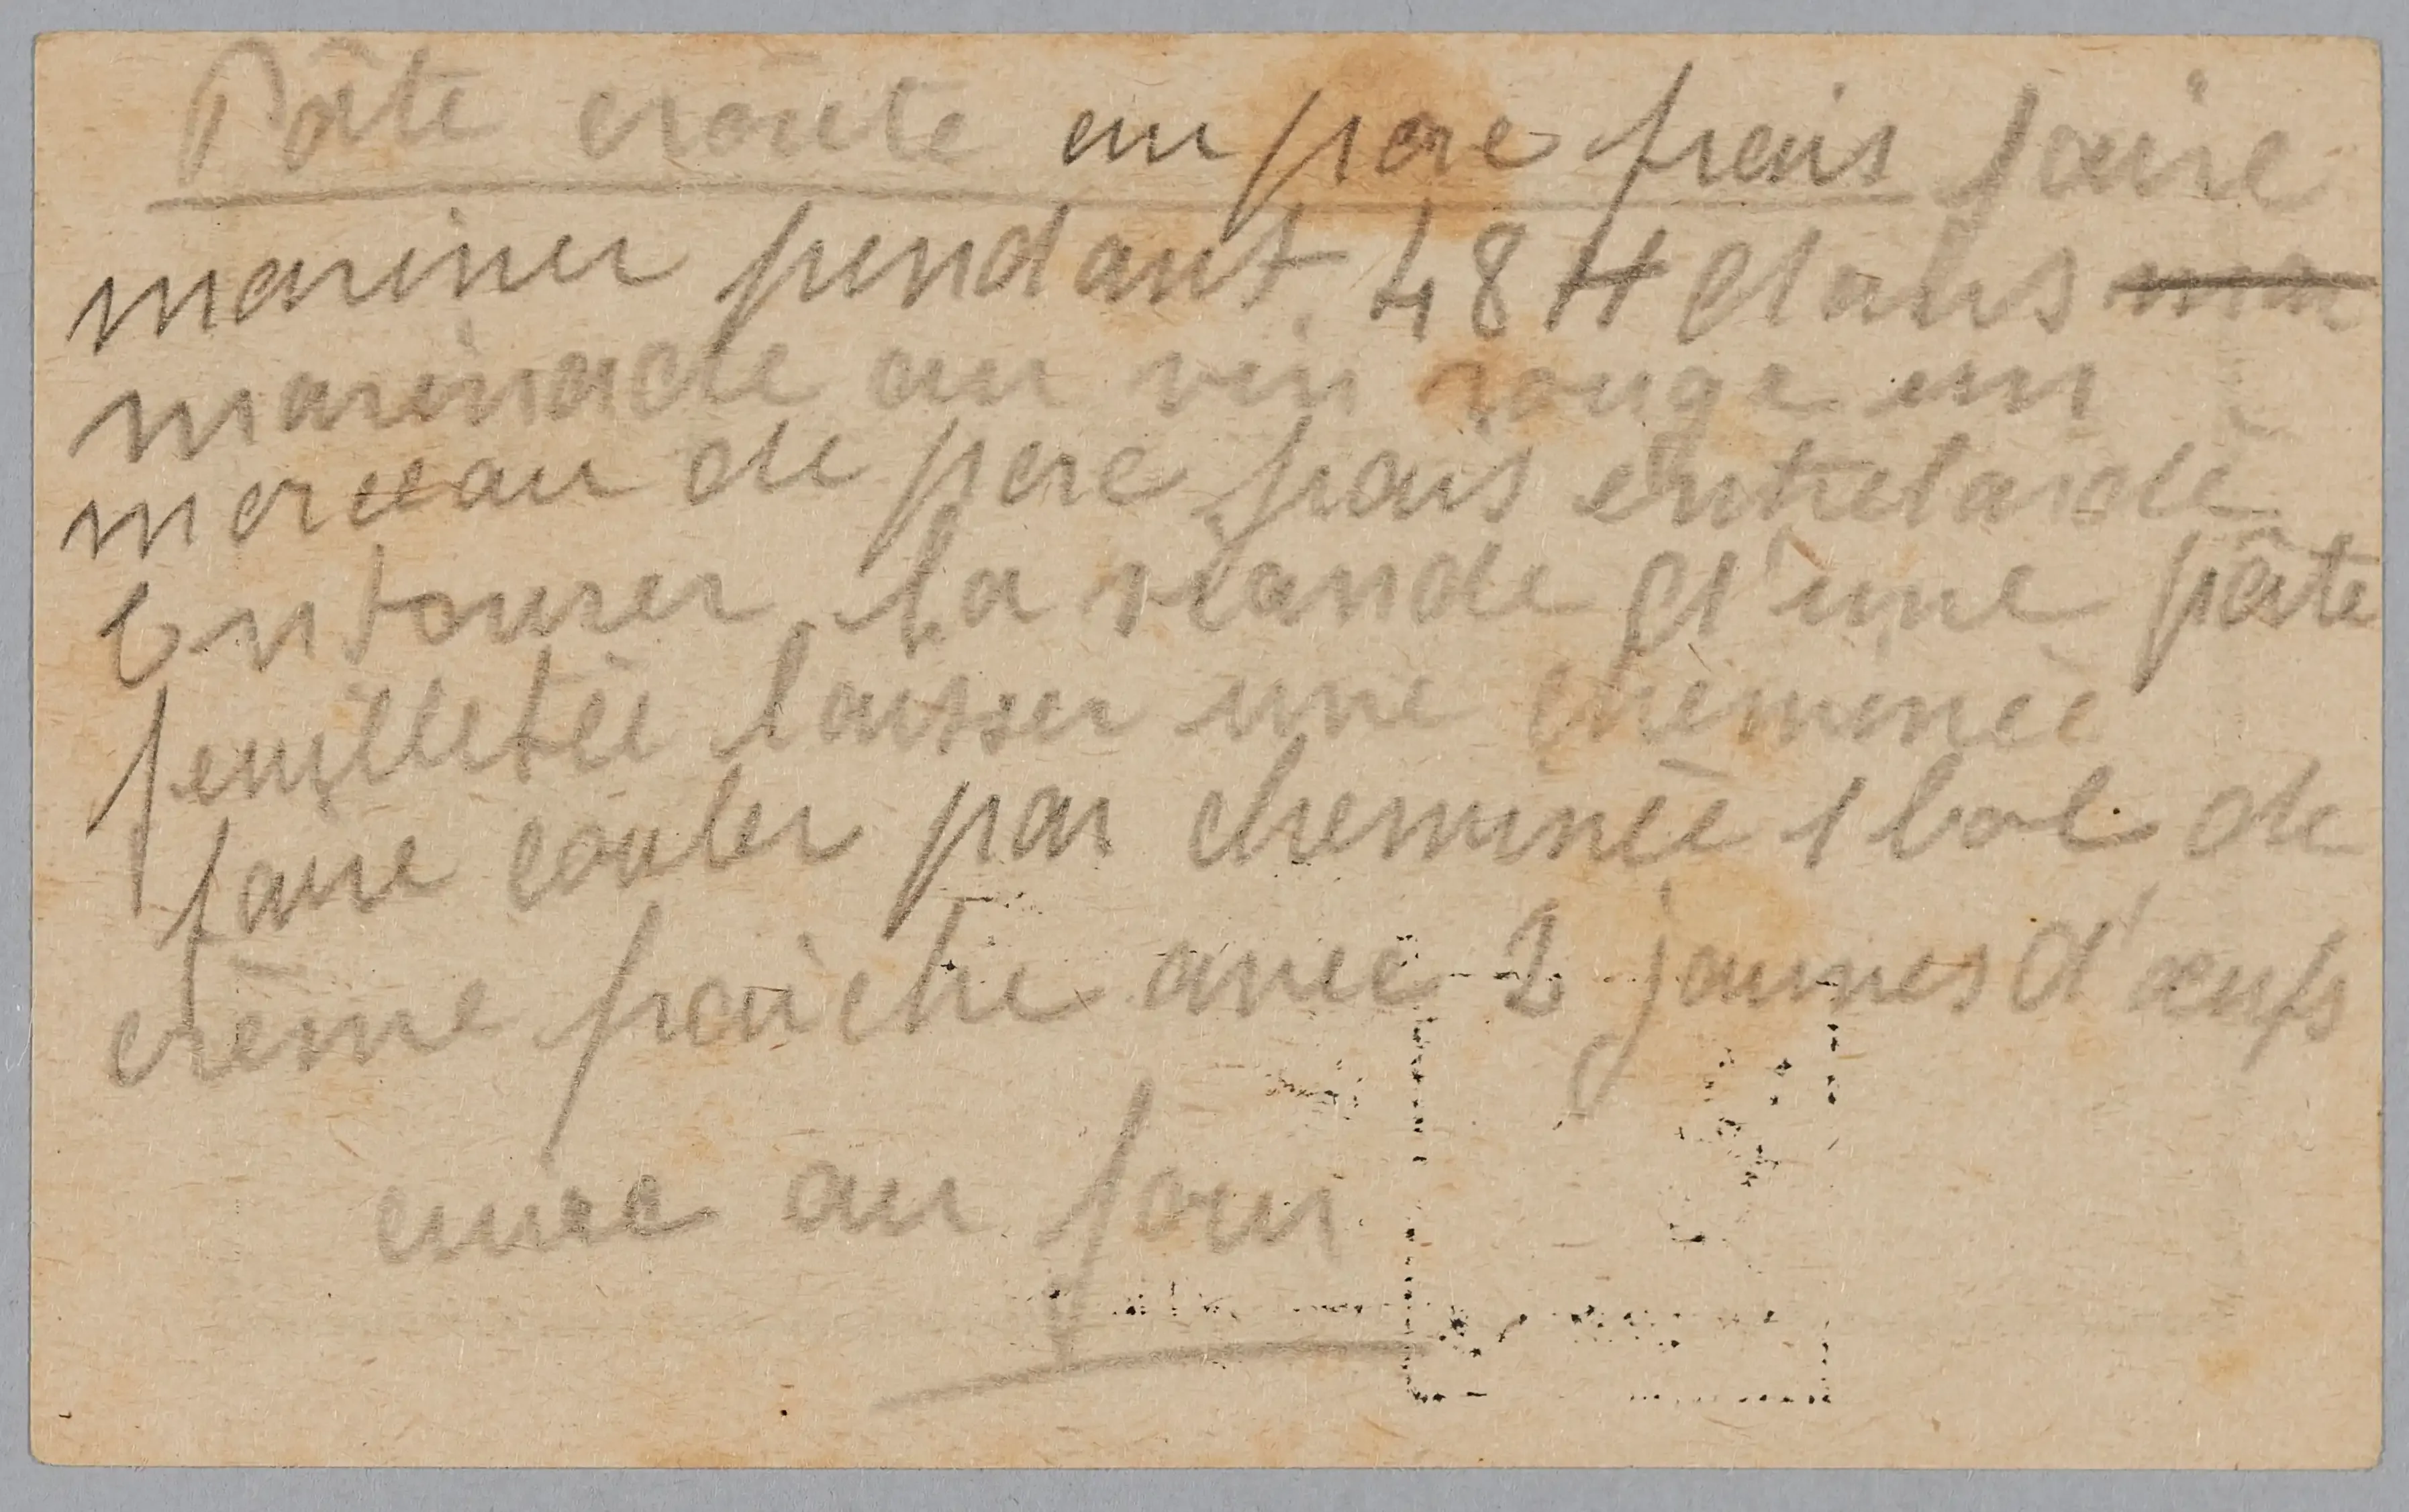 Pâte croûte au porc frais faire
mariner pendant 48 H dans mar
marinade au vin rouge un
morceau de porc frais entrelardé
Entourer la viande d'une pâte
feuilletée laisser une chéminée
faire couler par cheminée 1 bol de
crème fraîche avec 2 jaunes d'œufs
cuire au four